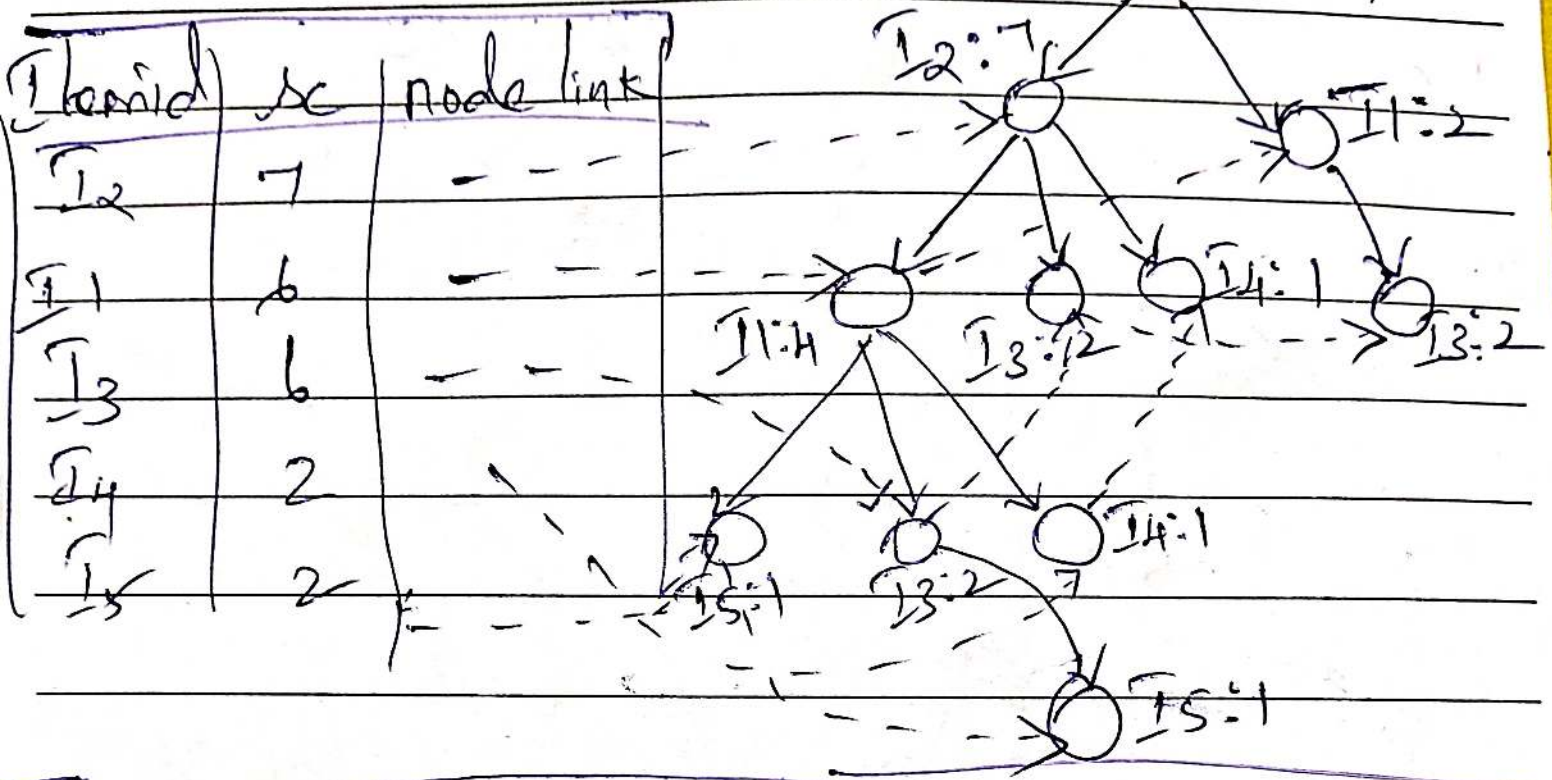 Itemid sc node link
I2 7
I1 6
I3 6
I4 2
I5 2
I2:7
I1:2
I1:4
I3:2
I4:1
I3:2
I5:1
I3:2
I4:1
I5:1